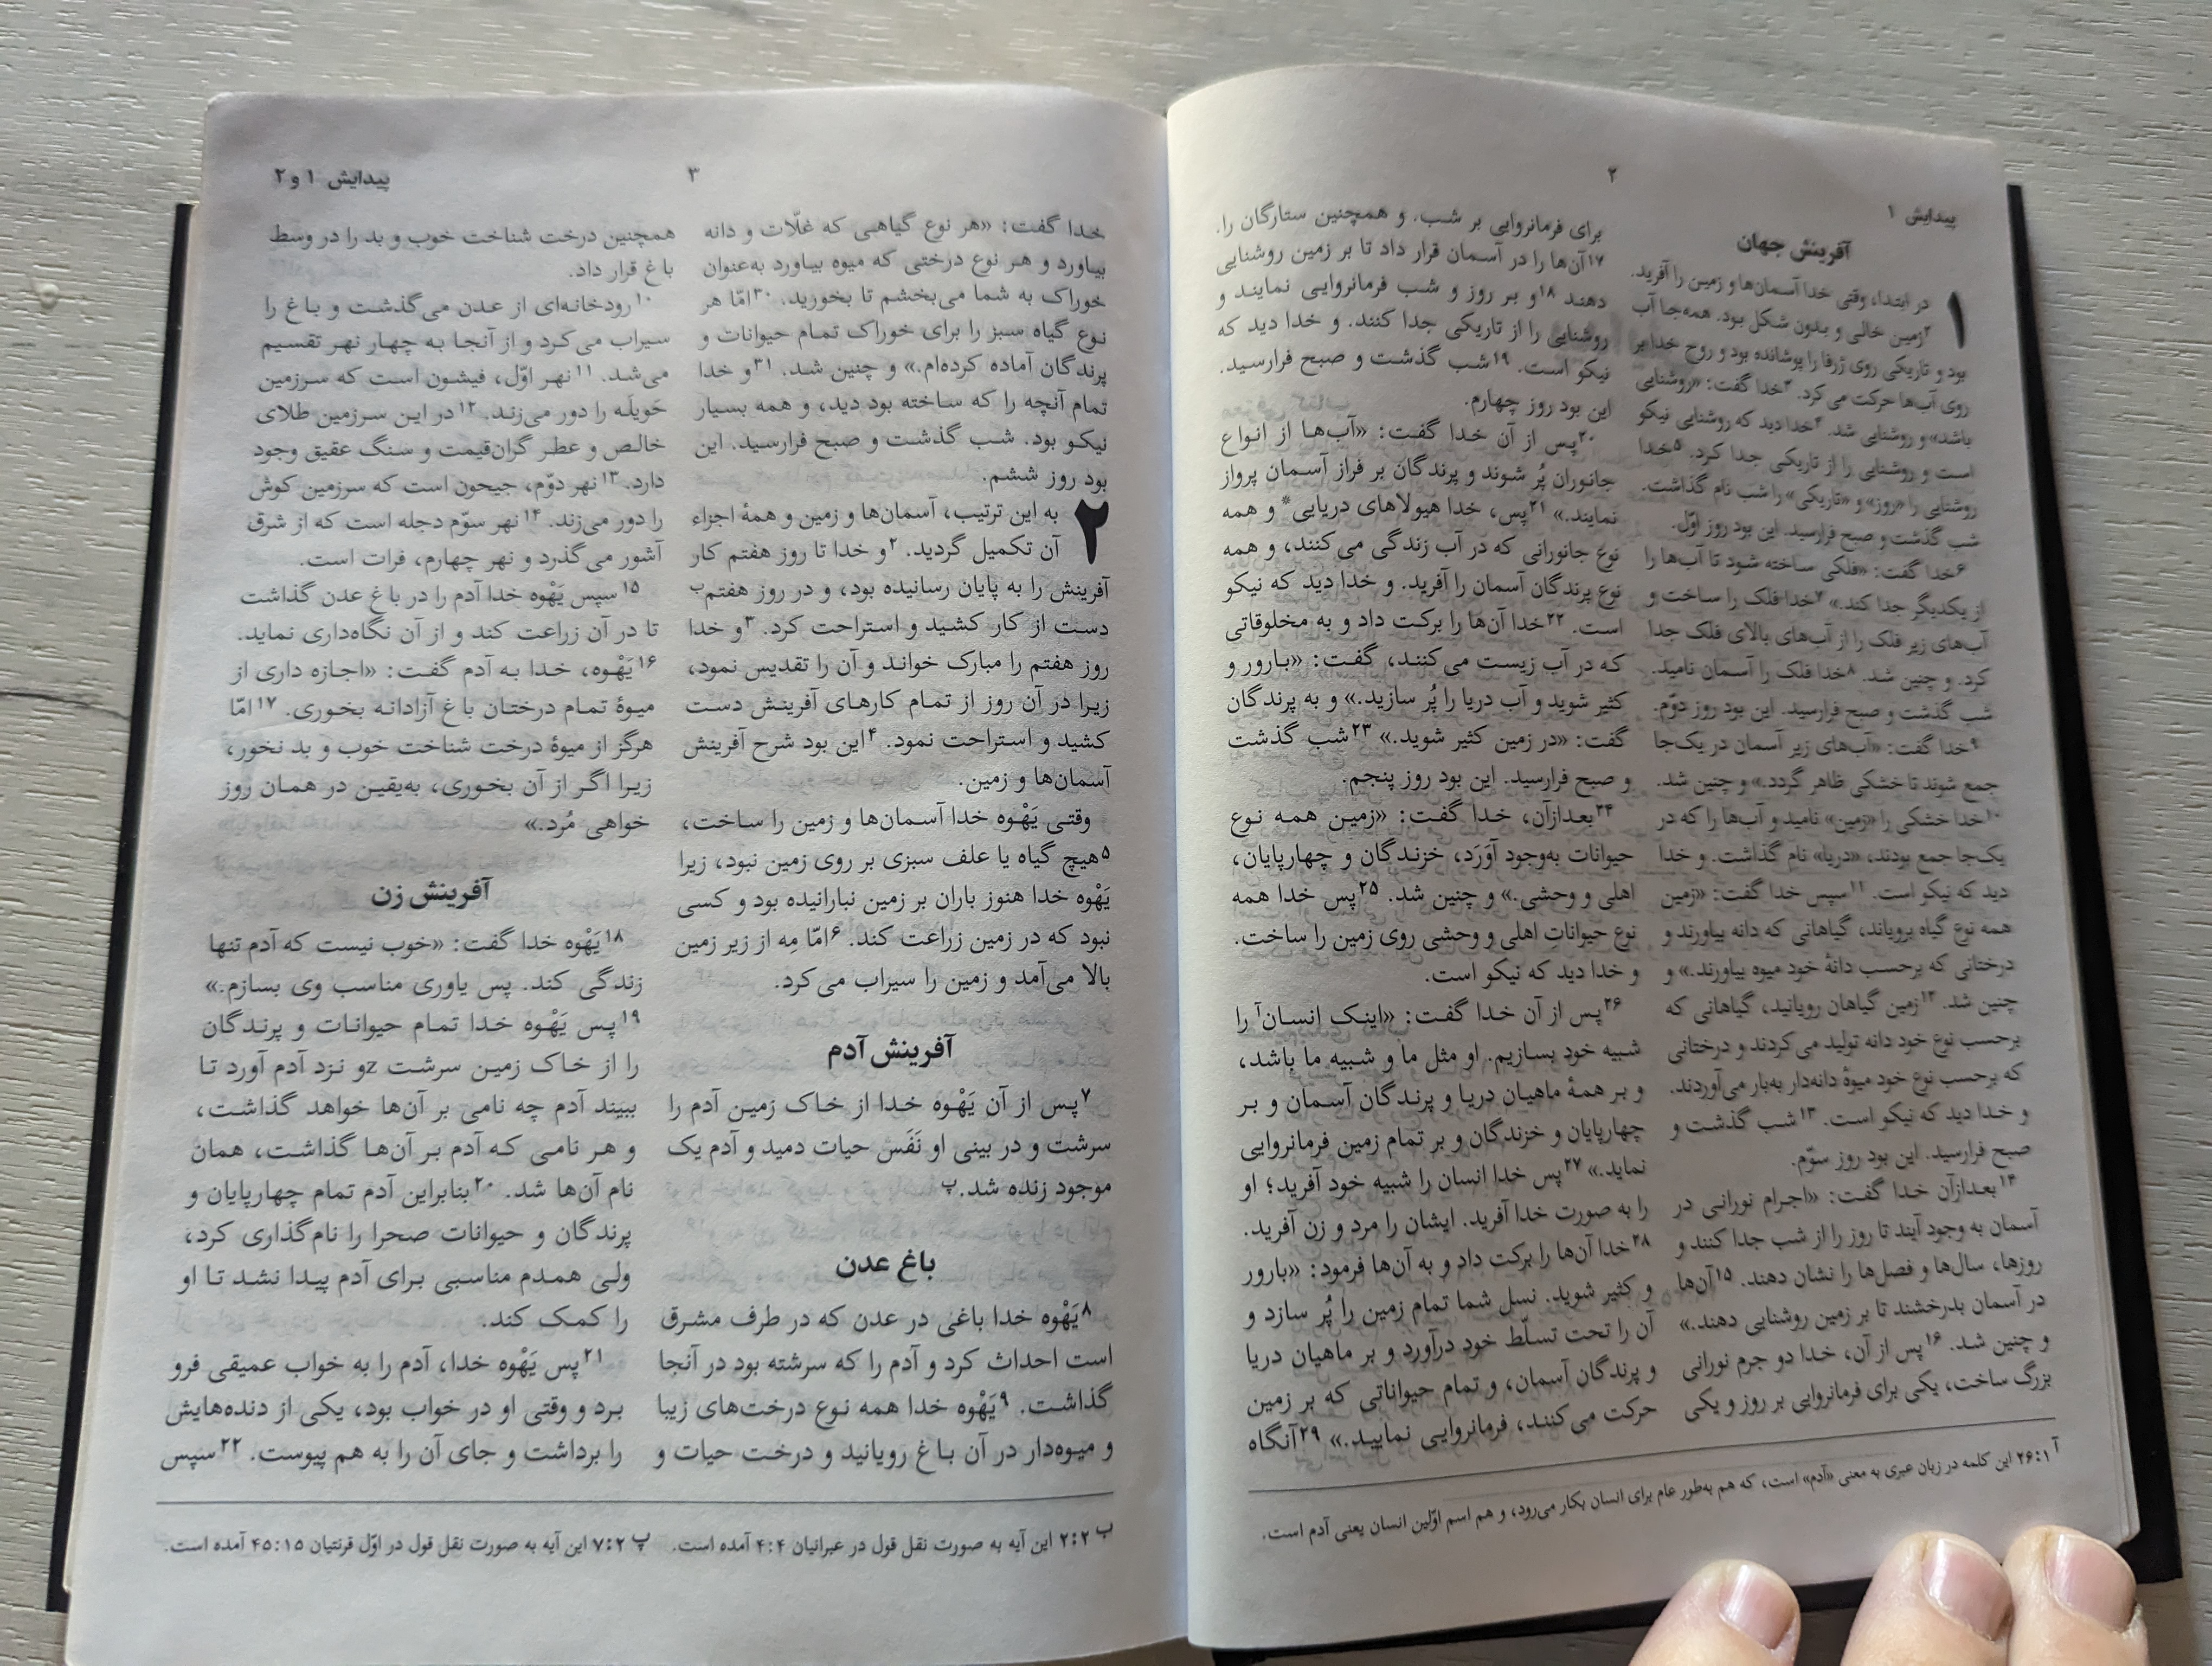 پیدایش ۱
۲
آفرینش جهان
۱ در ابتدا، وقتی خدا آسمان‌ها و زمین را آفرید.
۲زمین خالی و بدون شکل بود. همه‌جا آب
بود و تاریکی روی ژرفا را پوشانده بود و روح خدا بر
روی آب‌ها حرکت می‌کرد. ۳خدا گفت: «روشنایی
باشد» و روشنایی شد. ۴خدا دید که روشنایی نیکو
است و روشنایی را از تاریکی جدا کرد. ۵خدا
روشنایی را «روز» و «تاریکی» را شب نام گذاشت.
شب گذشت و صبح فرارسید. این بود روز اوّل.
۶خدا گفت: «فلکی ساخته شود تا آب‌ها را
از یکدیگر جدا کند.» ۷خدا فلک را ساخت و
آب‌های زیر فلک را از آب‌های بالای فلک جدا
کرد. و چنین شد. ۸خدا فلک را آسمان نامید.
شب گذشت و صبح فرارسید. این بود روز دوّم.
۹خدا گفت: «آب‌های زیر آسمان در یک‌جا
جمع شوند تا خشکی ظاهر گردد.» و چنین شد.
۱۰خدا خشکی را «زمین» نامید و آب‌ها را که در
یک‌جا جمع بودند، «دریا» نام گذاشت. و خدا
دید که نیکو است. ۱۱سپس خدا گفت: «زمین
همه نوع گیاه برویاند، گیاهانی که دانه بیاورند و
درختانی که برحسب دانهٔ خود میوه بیاورند.» و
چنین شد. ۱۲زمین گیاهان رویانید، گیاهانی که
برحسب نوع خود دانه تولید می‌کردند و درختانی
که برحسب نوع خود میوهٔ دانه‌دار به‌بار می‌آوردند.
و خدا دید که نیکو است. ۱۳شب گذشت و
صبح فرارسید. این بود روز سوّم.
۱۴بعدازآن خدا گفت: «اجرام نورانی در
آسمان به وجود آیند تا روز را از شب جدا کنند و
روزها، سال‌ها و فصل‌ها را نشان دهند. ۱۵آن‌ها
در آسمان بدرخشند تا بر زمین روشنایی دهند.»
و چنین شد. ۱۶پس از آن، خدا دو جرم نورانی
بزرگ ساخت، یکی برای فرمانروایی بر روز و یکی
برای فرمانروایی بر شب. و همچنین ستارگان را.
۱۷آن‌ها را در آسمان قرار داد تا بر زمین روشنایی
دهند ۱۸و بر روز و شب فرمانروایی نمایند و
روشنایی را از تاریکی جدا کنند. و خدا دید که
نیکو است. ۱۹شب گذشت و صبح فرارسید.
این بود روز چهارم.
۲۰پس از آن خدا گفت: «آب‌ها از انواع
جانوران پُر شوند و پرندگان بر فراز آسمان پرواز
نمایند.» ۲۱پس، خدا هیولاهای دریایی* و همه
نوع جانورانی که در آب زندگی می‌کنند، و همه
نوع پرندگان آسمان را آفرید. و خدا دید که نیکو
است. ۲۲خدا آن‌ها را برکت داد و به مخلوقاتی
که در آب زیست می‌کنند، گفت: «بارور و
کثیر شوید و آب دریا را پُر سازید.» و به پرندگان
گفت: «در زمین کثیر شوید.» ۲۳شب گذشت
و صبح فرارسید. این بود روز پنجم.
۲۴بعدازآن، خدا گفت: «زمین همه نوع
حیوانات به‌وجود آوَرَد، خزندگان و چهارپایان،
اهلی و وحشی.» و چنین شد. ۲۵پس خدا همه
نوع حیواناتِ اهلی و وحشی روی زمین را ساخت.
و خدا دید که نیکو است.
۲۶پس از آن خدا گفت: «اینک انسانآ را
شبیه خود بسازیم. او مثل ما و شبیه ما باشد،
و بر همهٔ ماهیان دریا و پرندگان آسمان و بر
چهارپایان و خزندگان و بر تمام زمین فرمانروایی
نماید.» ۲۷پس خدا انسان را شبیه خود آفرید؛ او
را به صورت خدا آفرید. ایشان را مرد و زن آفرید.
۲۸خدا آن‌ها را برکت داد و به آن‌ها فرمود: «بارور
و کثیر شوید. نسل شما تمام زمین را پُر سازد و
آن را تحت تسلّط خود درآورد و بر ماهیان دریا
و پرندگان آسمان، و تمام حیواناتی که بر زمین
حرکت می‌کنند، فرمانروایی نمایید.» ۲۹آنگاه
آ ۲۶:۱ این کلمه در زبان عبری به معنی «آدم» است، که هم به‌طور عام برای انسان بکار می‌رود، و هم اسم اوّلین انسان یعنی آدم است.
۳
پیدایش ۱ و ۲
خدا گفت: «هر نوع گیاهی که غلّات و دانه
بیاورد و هر نوع درختی که میوه بیاورد به‌عنوان
خوراک به شما می‌بخشم تا بخورید. ۳۰امّا هر
نوع گیاه سبز را برای خوراک تمام حیوانات و
پرندگان آماده کرده‌ام.» و چنین شد. ۳۱و خدا
تمام آنچه را که ساخته بود دید، و همه بسیار
نیکو بود. شب گذشت و صبح فرارسید. این
بود روز ششم.
۲ به این ترتیب، آسمان‌ها و زمین و همهٔ اجزاء
آن تکمیل گردید. ۲و خدا تا روز هفتم کار
آفرینش را به پایان رسانیده بود، و در روز هفتمب
دست از کار کشید و استراحت کرد. ۳و خدا
روز هفتم را مبارک خواند و آن را تقدیس نمود،
زیرا در آن روز از تمام کارهای آفرینش دست
کشید و استراحت نمود. ۴این بود شرح آفرینش
آسمان‌ها و زمین.
وقتی یَهْوه خدا آسمان‌ها و زمین را ساخت،
۵هیچ گیاه یا علف سبزی بر روی زمین نبود، زیرا
یَهْوه خدا هنوز باران بر زمین نبارانیده بود و کسی
نبود که در زمین زراعت کند. ۶امّا مِه از زیر زمین
بالا می‌آمد و زمین را سیراب می‌کرد.
آفرینش آدم
۷پس از آن یَهْوه خدا از خاک زمین آدم را
سرشت و در بینی او نَفَس حیات دمید و آدم یک
موجود زنده شد.پ
باغ عدن
۸یَهْوه خدا باغی در عدن که در طرف مشرق
است احداث کرد و آدم را که سرشته بود در آنجا
گذاشت. ۹یَهْوه خدا همه نوع درخت‌های زیبا
و میوه‌دار در آن باغ رویانید و درخت حیات و
همچنین درخت شناخت خوب و بد را در وسط
باغ قرار داد.
۱۰رودخانه‌ای از عدن می‌گذشت و باغ را
سیراب می‌کرد و از آنجا به چهار نهر تقسیم
می‌شد. ۱۱نهر اوّل، فیشون است که سرزمین
حَویلَه را دور می‌زند. ۱۲در این سرزمین طلای
خالص و عطر گران‌قیمت و سنگ عقیق وجود
دارد. ۱۳نهر دوّم، جیحون است که سرزمین کوش
را دور می‌زند. ۱۴نهر سوّم دجله است که از شرق
آشور می‌گذرد و نهر چهارم، فرات است.
۱۵سپس یَهْوه خدا آدم را در باغ عدن گذاشت
تا در آن زراعت کند و از آن نگاه‌داری نماید.
۱۶یَهْوه، خدا به آدم گفت: «اجازه داری از
میوهٔ تمام درختان باغ آزادانه بخوری. ۱۷امّا
هرگز از میوهٔ درخت شناخت خوب و بد نخور،
زیرا اگر از آن بخوری، به‌یقین در همان روز
خواهی مُرد.»
آفرینش زن
۱۸یَهْوه خدا گفت: «خوب نیست که آدم تنها
زندگی کند. پس یاوری مناسب وی بسازم.»
۱۹پس یَهْوه خدا تمام حیوانات و پرندگان
را از خاک زمین سرشت zو نزد آدم آورد تا
ببیند آدم چه نامی بر آن‌ها خواهد گذاشت،
و هر نامی که آدم بر آن‌ها گذاشت، همان
نام آن‌ها شد. ۲۰بنابراین آدم تمام چهارپایان و
پرندگان و حیوانات صحرا را نام‌گذاری کرد،
ولی همدم مناسبی برای آدم پیدا نشد تا او
را کمک کند.
۲۱پس یَهْوه خدا، آدم را به خواب عمیقی فرو
برد و وقتی او در خواب بود، یکی از دنده‌هایش
را برداشت و جای آن را به هم پیوست. ۲۲سپس
ب ۲:۲ این آیه به صورت نقل قول در عبرانیان ۴:۴ آمده است. پ ۷:۲ این آیه به صورت نقل قول در اوّل قرنتیان ۴۵:۱۵ آمده است.